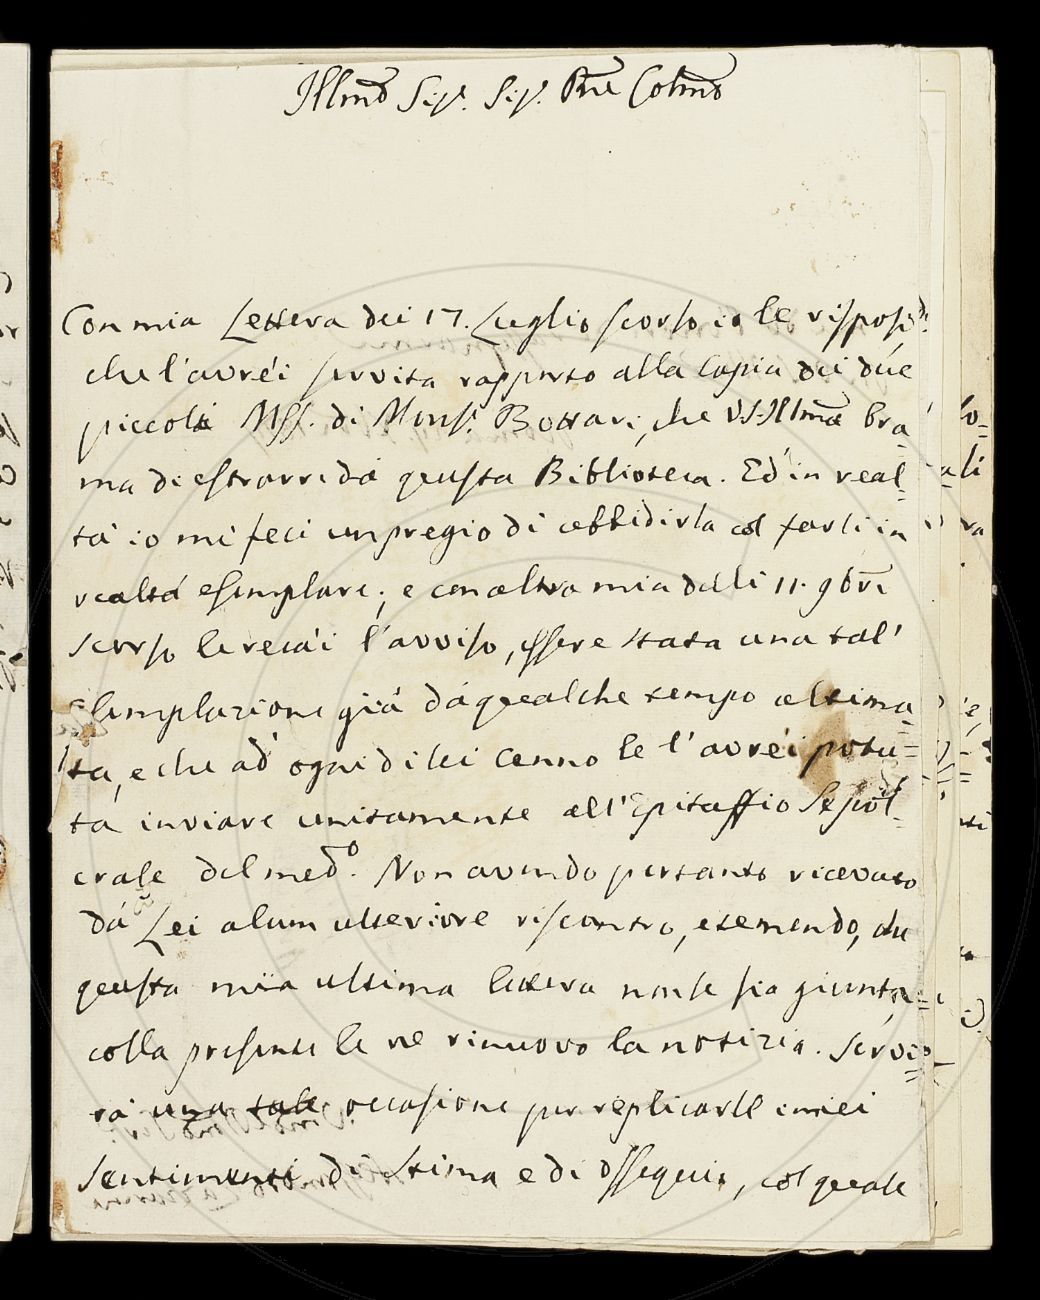 Illmõ Sigr. Sigr. Pñe Colmõ
Con mia Lettera dei 17. Luglio scorso io le risposi,
che l'avréi servita rapporto alla Copia dei dúe
piccoli Mss. di Monsr. Bottari, che V.S. Illmã bra=
ma di estrarre dá questa Biblioteca. Ed in real=
tá io mi feci un pregio di ubbidirla col farli in
realtá esemplare; e con altra mia delli 11. 9brẽ
scorso le recái l'avviso, essere stata una tal'
esemplazione giá dá qualche tempo ultima=
ta, e che ad ogni di lei Cenno le l'avréi potu=
ta inviare unitamente all'Epitaffio Sepol=
crale del medo. Non avendo pertanto ricevuto
dá Lei alcun ulteriore riscontro, e temendo, che
questa mia ultima lettera non le sia giunta,
colla presente le ne rinuovo la notizia. Servi=
rá una tale occasione per replicarle i miei
sentimenti di Stima e di ossequio, col quale